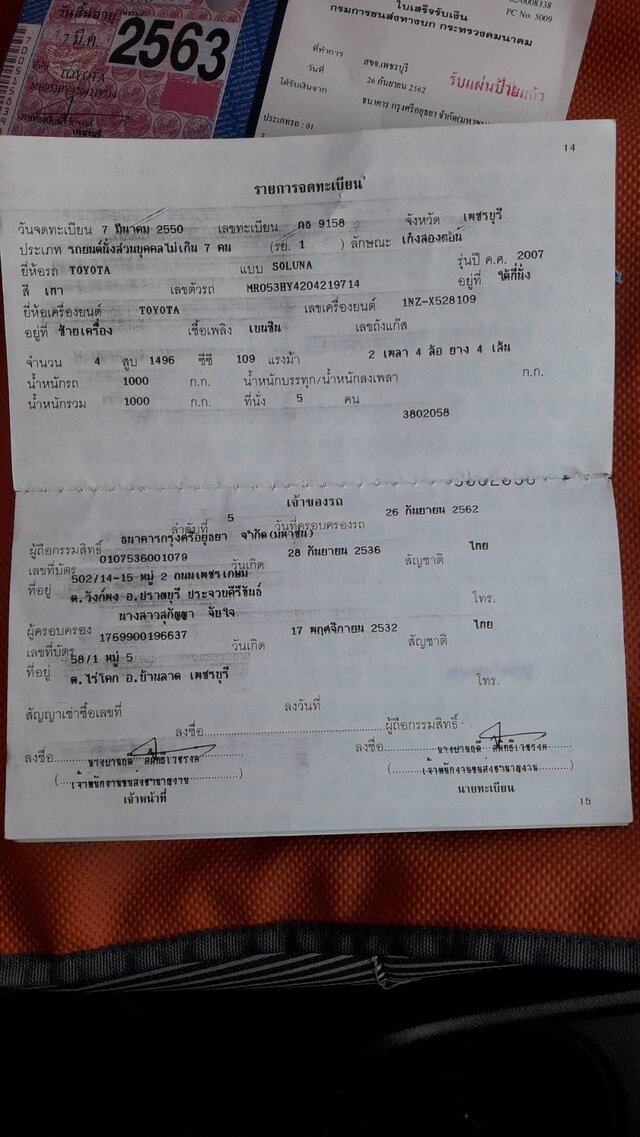 วันสิ้นอายุ
7 มี.ค. 2563
TOYOTA
MR053HY4204219714
เพชรบุรี
ใบเสร็จรับเงิน
PC No. 5009
กรมการขนส่งทางบก กระทรวงคมนาคม
ที่ทำการ สขจ.เพชรบุรี
วันที่ 26 กันยายน 2562
รับแผ่นป้ายแล้ว
ได้รับเงินจาก ธนาคาร กรุงศรีอยุธยา จำกัด(มหาชน
ประเภทรถ : 01
14
รายการจดทะเบียน
วันจดทะเบียน 7 มีนาคม 2550 เลขทะเบียน กธ 9158 จังหวัด เพชรบุรี
ประเภท รถยนต์นั่งส่วนบุคคลไม่เกิน 7 คน (รย. 1 ) ลักษณะ เก๋งสองตอน
ยี่ห้อรถ TOYOTA แบบ SOLUNA รุ่นปี ค.ศ. 2007
สี เทา เลขตัวรถ MR053HY4204219714 อยู่ที่ ใต้ที่นั่ง
ยี่ห้อเครื่องยนต์ TOYOTA เลขเครื่องยนต์ 1NZ-X528109
อยู่ที่ ซ้ายเครื่อง เชื้อเพลิง เบนซิน เลขถังแก๊ส
จำนวน 4 สูบ 1496 ซีซี 109 แรงม้า 2 เพลา 4 ล้อ ยาง 4 เส้น
น้ำหนักรถ 1000 ก.ก. น้ำหนักบรรทุก/น้ำหนักลงเพลา ก.ก.
น้ำหนักรวม 1000 ก.ก. ที่นั่ง 5 คน
3802058
เจ้าของรถ
ลำดับที่ 5 วันที่ครอบครองรถ 26 กันยายน 2562
ผู้ถือกรรมสิทธิ์ ธนาคารกรุงศรีอยุธยา จำกัด(มหาชน)
เลขที่บัตร 0107536001079 วันเกิด 28 กันยายน 2536 สัญชาติ ไทย
ที่อยู่ 502/14-15 หมู่ 2 ถนนเพชรเกษม
ต.วังก์พง อ.ปราณบุรี ประจวบคีรีขันธ์ โทร.
ผู้ครอบครอง นางสาวสุกัญญา จับใจ
เลขที่บัตร 1769900196637 วันเกิด 17 พฤศจิกายน 2532 สัญชาติ ไทย
ที่อยู่ 58/1 หมู่ 5
ต.ไร่โคก อ.บ้านลาด เพชรบุรี โทร.
สัญญาเช่าซื้อเลขที่ ลงวันที่
ลงชื่อ ผู้ถือกรรมสิทธิ์
ลงชื่อ ลงชื่อ
เจ้าหน้าที่ นายทะเบียน
15